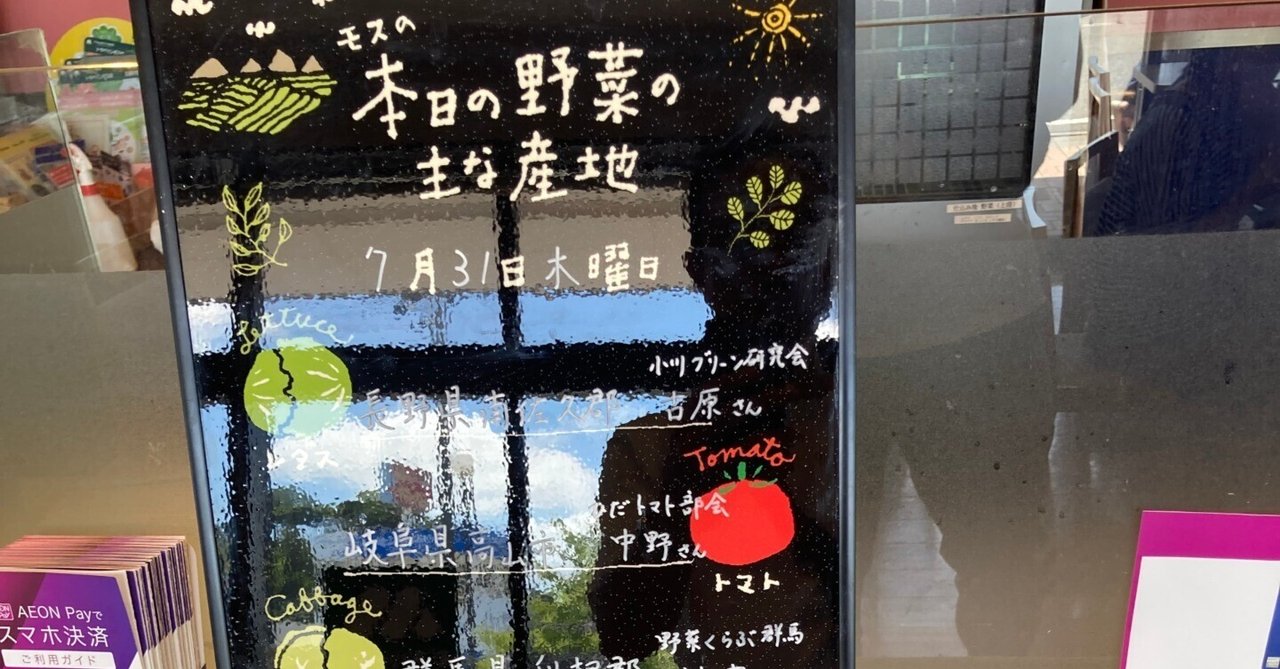 モスの
本日の野菜の
主な産地
7月31日木曜日
Lettuce
小川グリーン研究会
長野県南佐久郡 古原さん
レタス
Tomato
ひだトマト部会
岐阜県高山市 中野さん
トマト
Cabbage
野菜くらぶ群馬
群馬県利根郡
AEON Payで
スマホ決済
ご利用ガイド